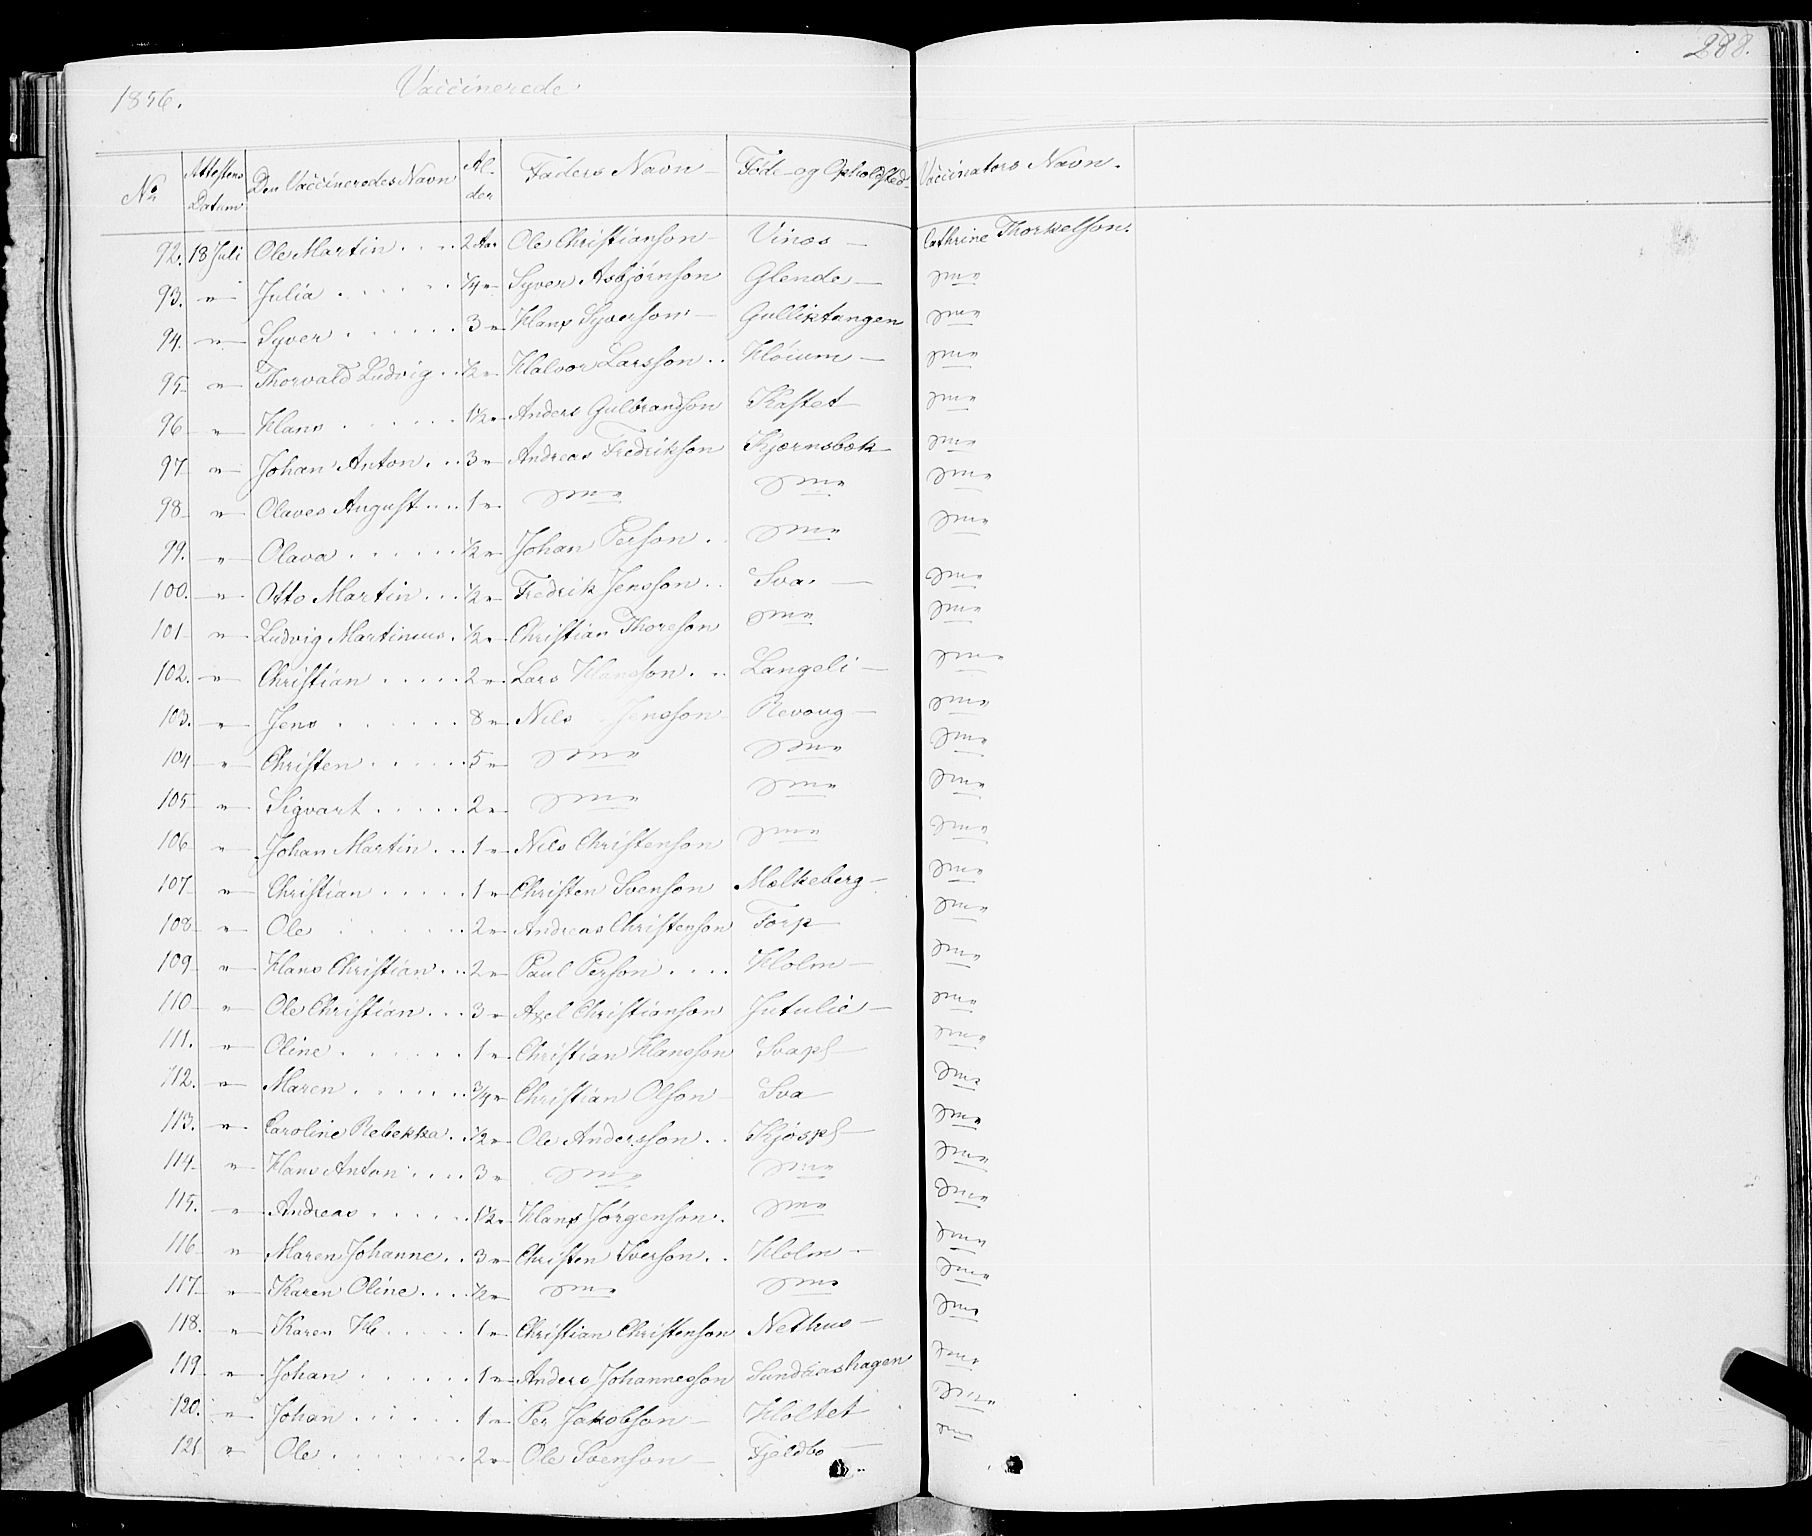 288.
1856. Vaccinerede
No Attestens Datum Den Vaccineredes Navn Alder Faders Navn Føde- og Opholdsted Vaccinators Navn.
92. 18 Juli Ole Martin 2 Aar Ole Christianson Vines Cathrine Thorkelson.
93. " Julia 1/4 " Syver Asbjørnson Glende Dme
94. " Syver 3 " Hans Syverson Gulliktangen Dme
95 " Thorvald Ludvig 1/2 " Halvor Larsson Høium Dme
96 " Hans 1 1/2 " Anders Gulbrandson Kastet Dme
97 " Johan Anton 3 " Andreas Fredrikson Kjærnsbæk Dme
98 " Olaves August 1 " Dme Dme Dme
99. " Olava 1/2 " Johan Person Dme Dme
100. " Otto Martin 1/2 " Fredrik Jensson Sva Dme
101 " Ludvig Martinius 1/2 " Christian Thoreson Dme Dme
102. " Christian 2 " Lars Hansson Langeli Dme
103. " Jens 8 " Nils Jensson Revoug Dme
104 " Christen 5 " Dme Dme Dme
105 " Sigvart 2 " Dme Dme Dme
106 " Johan Martin 1 " Nils Christenson Dme Dme
107 " Christian 1 " Christen Svenson Melkeberg Dme
108 " Ole 2 " Andreas Christenson Torp Dme
109 " Hans Christian 2 " Paul Person Holm Dme
110 " Ole Christian 3 " Axel Christianson Jutulie Dme
111. " Oline 1 " Christian Hansson Svapl Dme
112. " Maren 3/4 " Christian Olson Sva Dme
113. " Caroline Rebekka 1/2 " Ole Andersson Kjøspl Dme
114 " Hans Anton 3 " Dme Dme Dme
115. " Andreas 1 1/2 " Hans Jørgenson Dme Dme
116 " Maren Johanne 3 " Christen Iverson Holm Dme
117 " Karen Oline 1/2 " Dme Dme Dme
118. " Karen 1 " Christian Christenson Nethus Dme
119 " Johan 1 " Anders Johannesson Sundaashagen Dme
120. " Johan 1 " Per Jakobson Holtet Dme
121 " Ole 2 " Ole Svenson Fjeldbo Dme